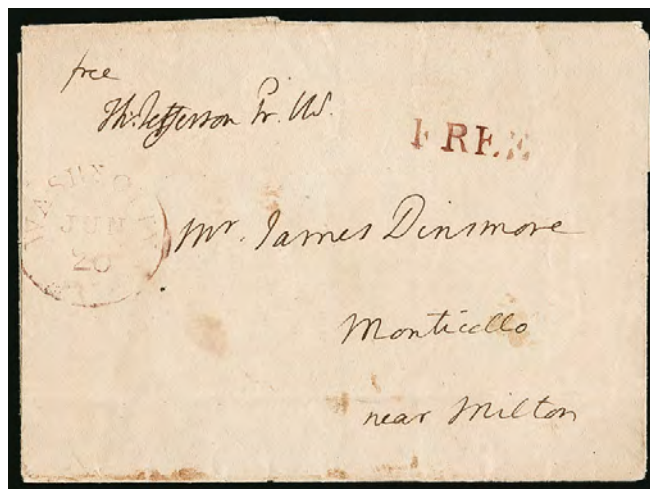 free
Th: Jefferson Pr. US.
FREE
WASH. CITY
JUN
20
Mr. James Dinsmore
Monticello
near Milton